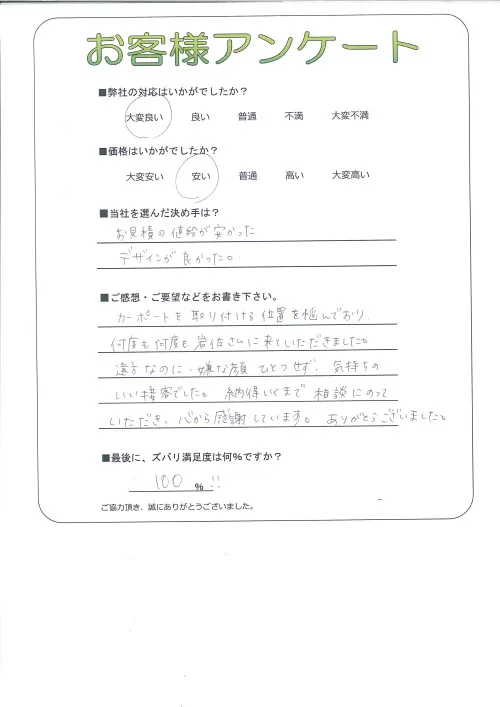 お客様アンケート
■弊社の対応はいかがでしたか？
大変良い 良い 普通 不満 大変不満
■価格はいかがでしたか？
大変安い 安い 普通 高い 大変高い
■当社を選んだ決め手は？
お見積の値段が安かった
デザインが良かった。
■ご感想・ご要望などをお書き下さい。
カーポートを取り付ける位置を悩んでおり、
何度も何度も岩佐さんに来ていただきました。
遠方なのに、嫌な顔ひとつせず、気持ちの
いい接客でした。納得いくまで相談にのって
いただき、心から感謝しています。ありがとうございました。
■最後に、ズバリ満足度は何%ですか？
100 % !!
ご協力頂き、誠にありがとうございました。